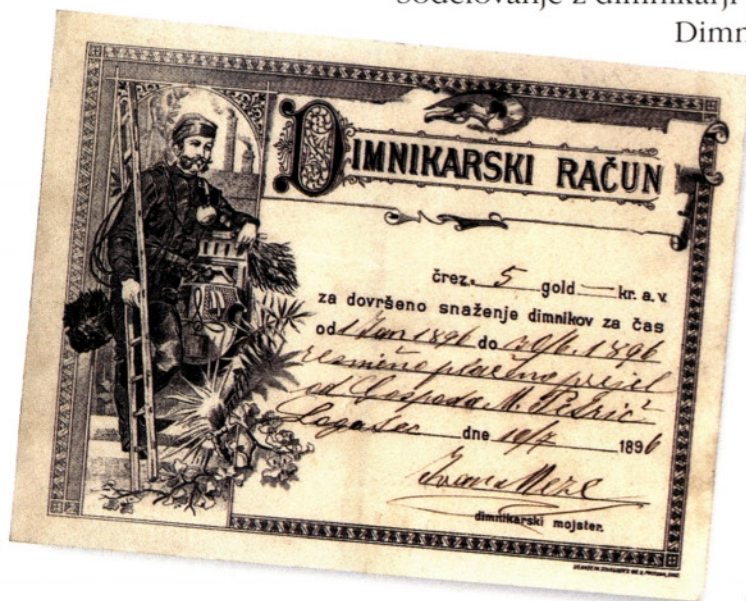 sodelovanje z dimnikarji
Dimn
DIMNIKARSKI RAČUN
črez 5 gold — kr. a. v.
za dovršeno snaženje dimnikov za čas
od 1 Jan 1896 do 30/6. 1896
resnično plačno prijel
od Gospoda M. Petrič
Logatec dne 10/7 1896
Ivan Meze
dimnikarski mojster.